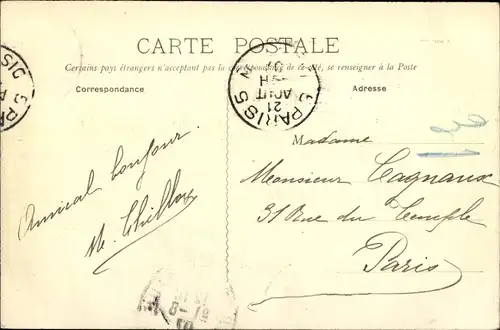 CARTE POSTALE
Certains pays étrangers n'acceptant pas la correspondance de ce côté, se renseigner à la Poste
Correspondance
Adresse
PARIS 5
21
AOUT
Amical bonjour
M.
Madame
Monsieur Cagnaux
31 Rue du Temple
Paris